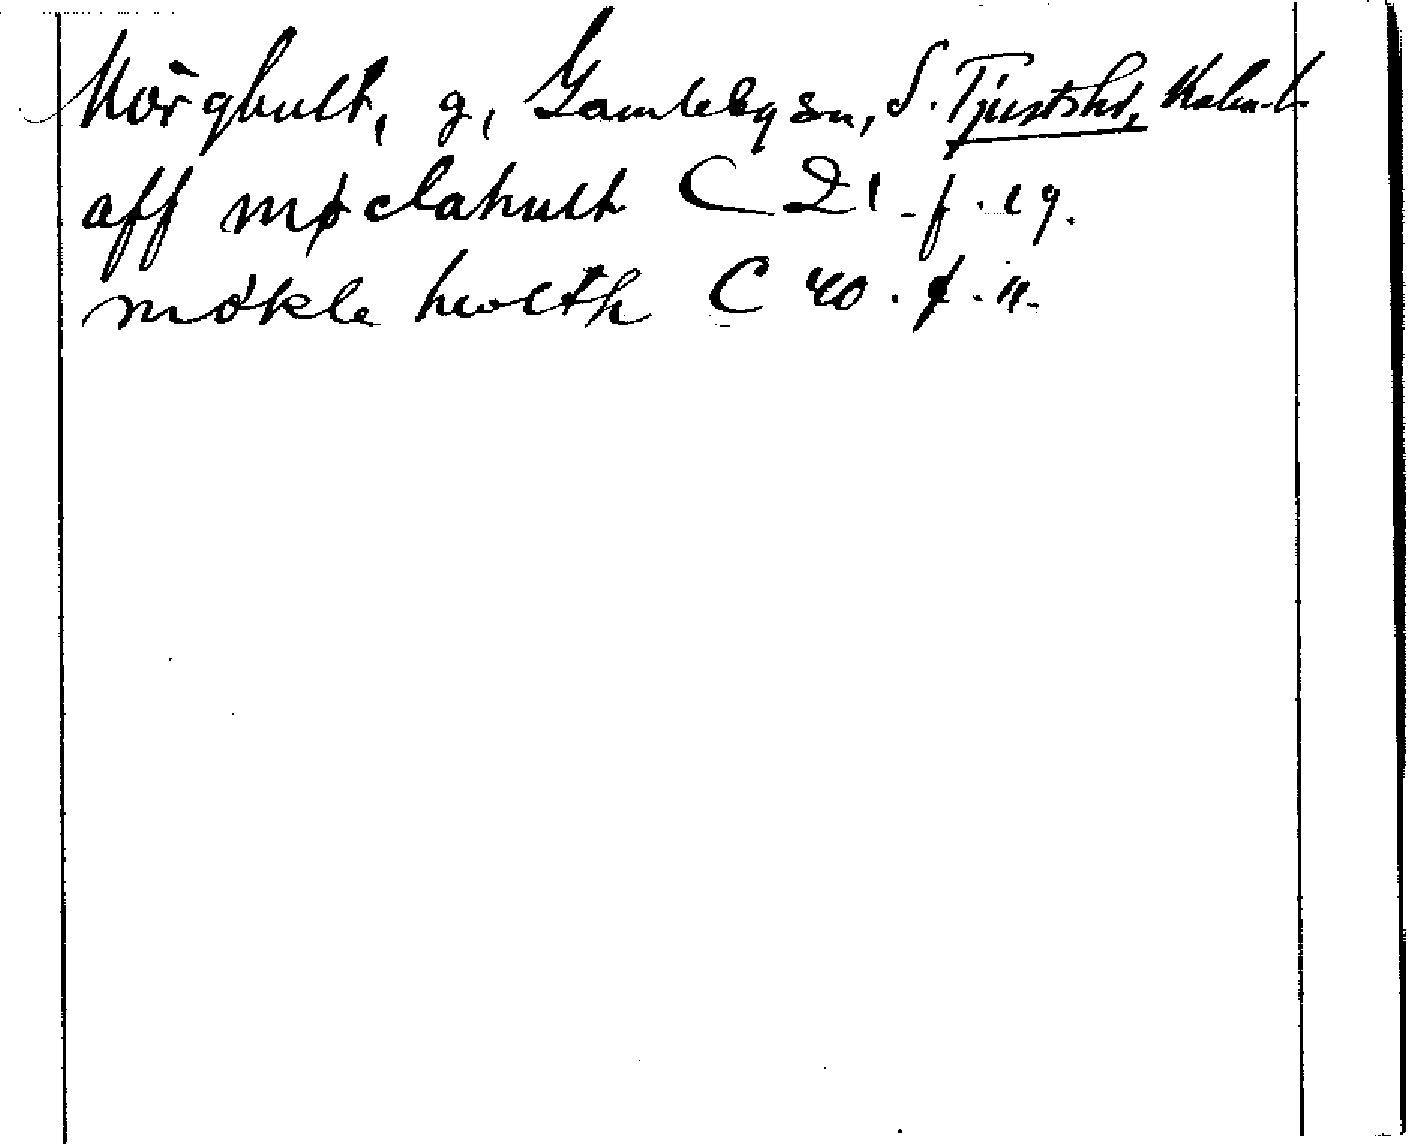 Mörghult, g, Gamleby sn, S. Tjusts hd, Kalm. l.
aff møclahult C 21 f. 19.
mökle hwlth C 40. f. 11.